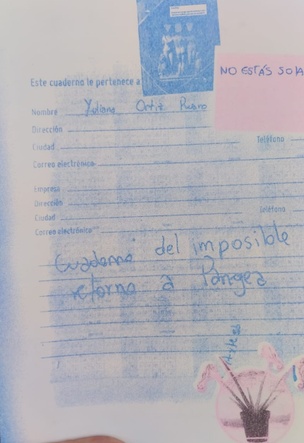 NO ESTÁS SOLA
Este cuaderno le pertenece a
Nombre Yuliana Ortiz Ruano
Dirección
Ciudad Teléfono
Correo electrónico
Empresa
Dirección
Ciudad Teléfono
Correo electrónico
Cuaderno del imposible
retorno a Pangea